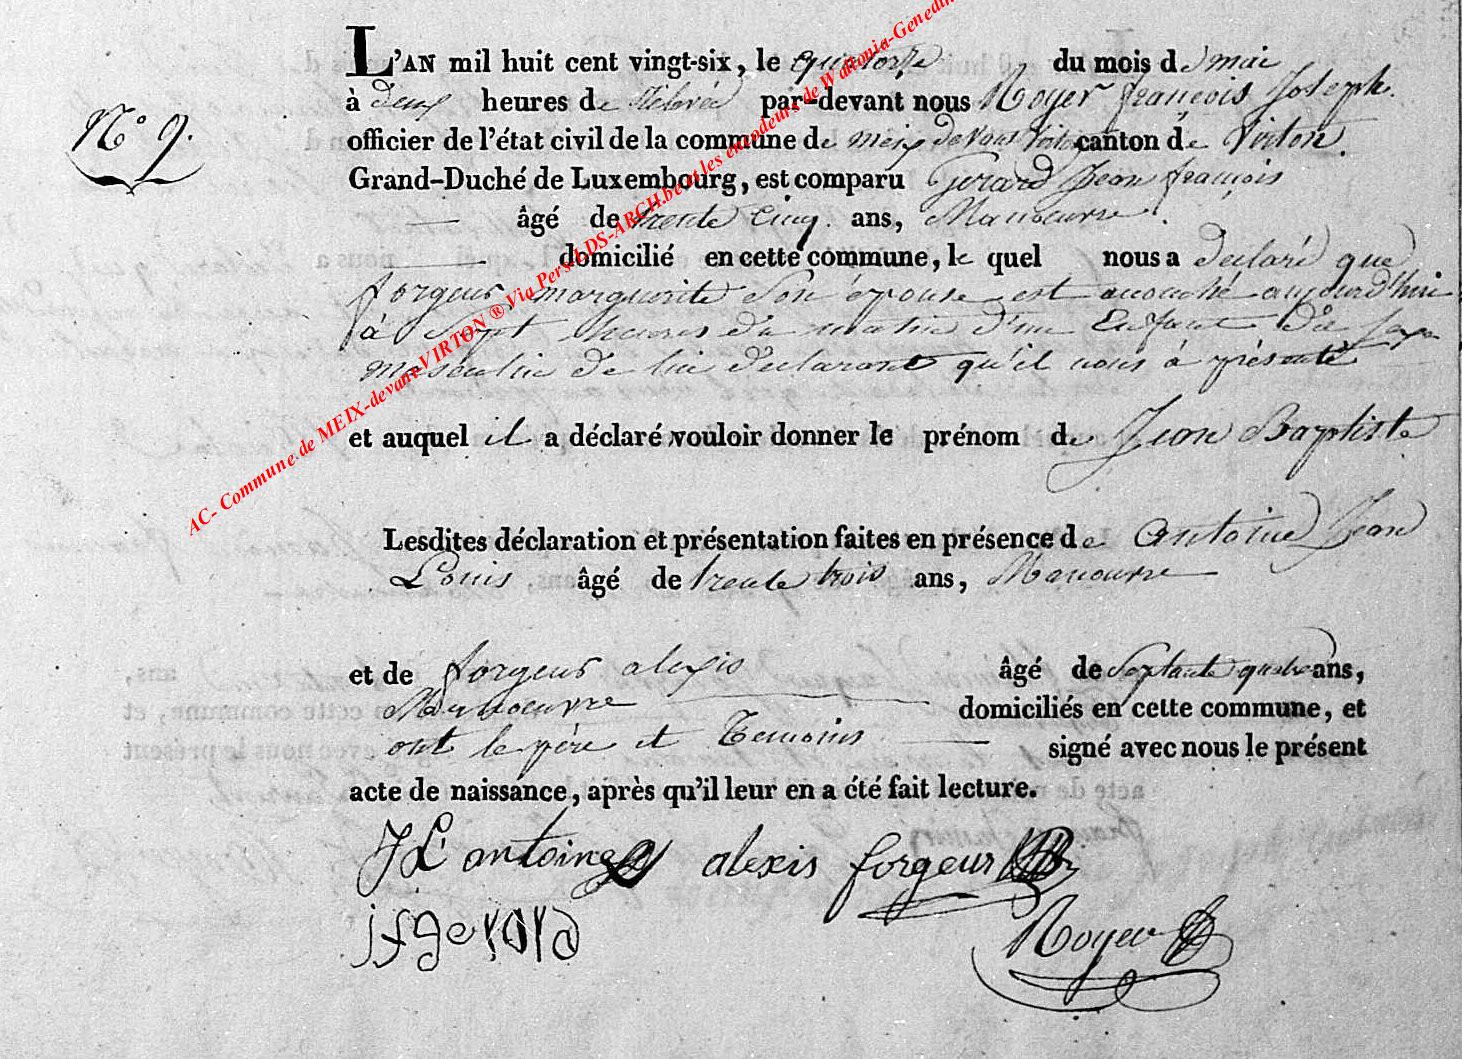 L'AN mil huit cent vingt-six, le quatorze du mois de mai
N.° 9.
à deux heures de relevée par-devant nous Noyer françois Joseph.
officier de l'état civil de la commune de meix devant Virton canton de Virton.
Grand-Duché de Luxembourg, est comparu Gerard Jean françois
âgé de trente cinq ans, Manoeuvre.
domicilié en cette commune, le quel nous a declaré que
forgeur marguerite son épouse est accouché aujourd'hui
à sept heures du matin d'un Enfant du sexe
masculin de lui declarant qu'il nous à présenté
et auquel il a déclaré vouloir donner le prénom de Jean Baptiste
Lesdites déclaration et présentation faites en présence de antoine Jean
Louis âgé de trente trois ans, Manouvre
et de forgeur alexis âgé de septante quatre ans,
Manoeuvre domiciliés en cette commune, et
ont le père et Temoins signé avec nous le présent
acte de naissance, après qu'il leur en a été fait lecture.
JL antoine alexis forgeur
jfgerard
Noyer
AC- Commune de MEIX-devant-VIRTON ® Via Pers-LDS-ARCH.be et les encodeurs de Wallonia-Genedin